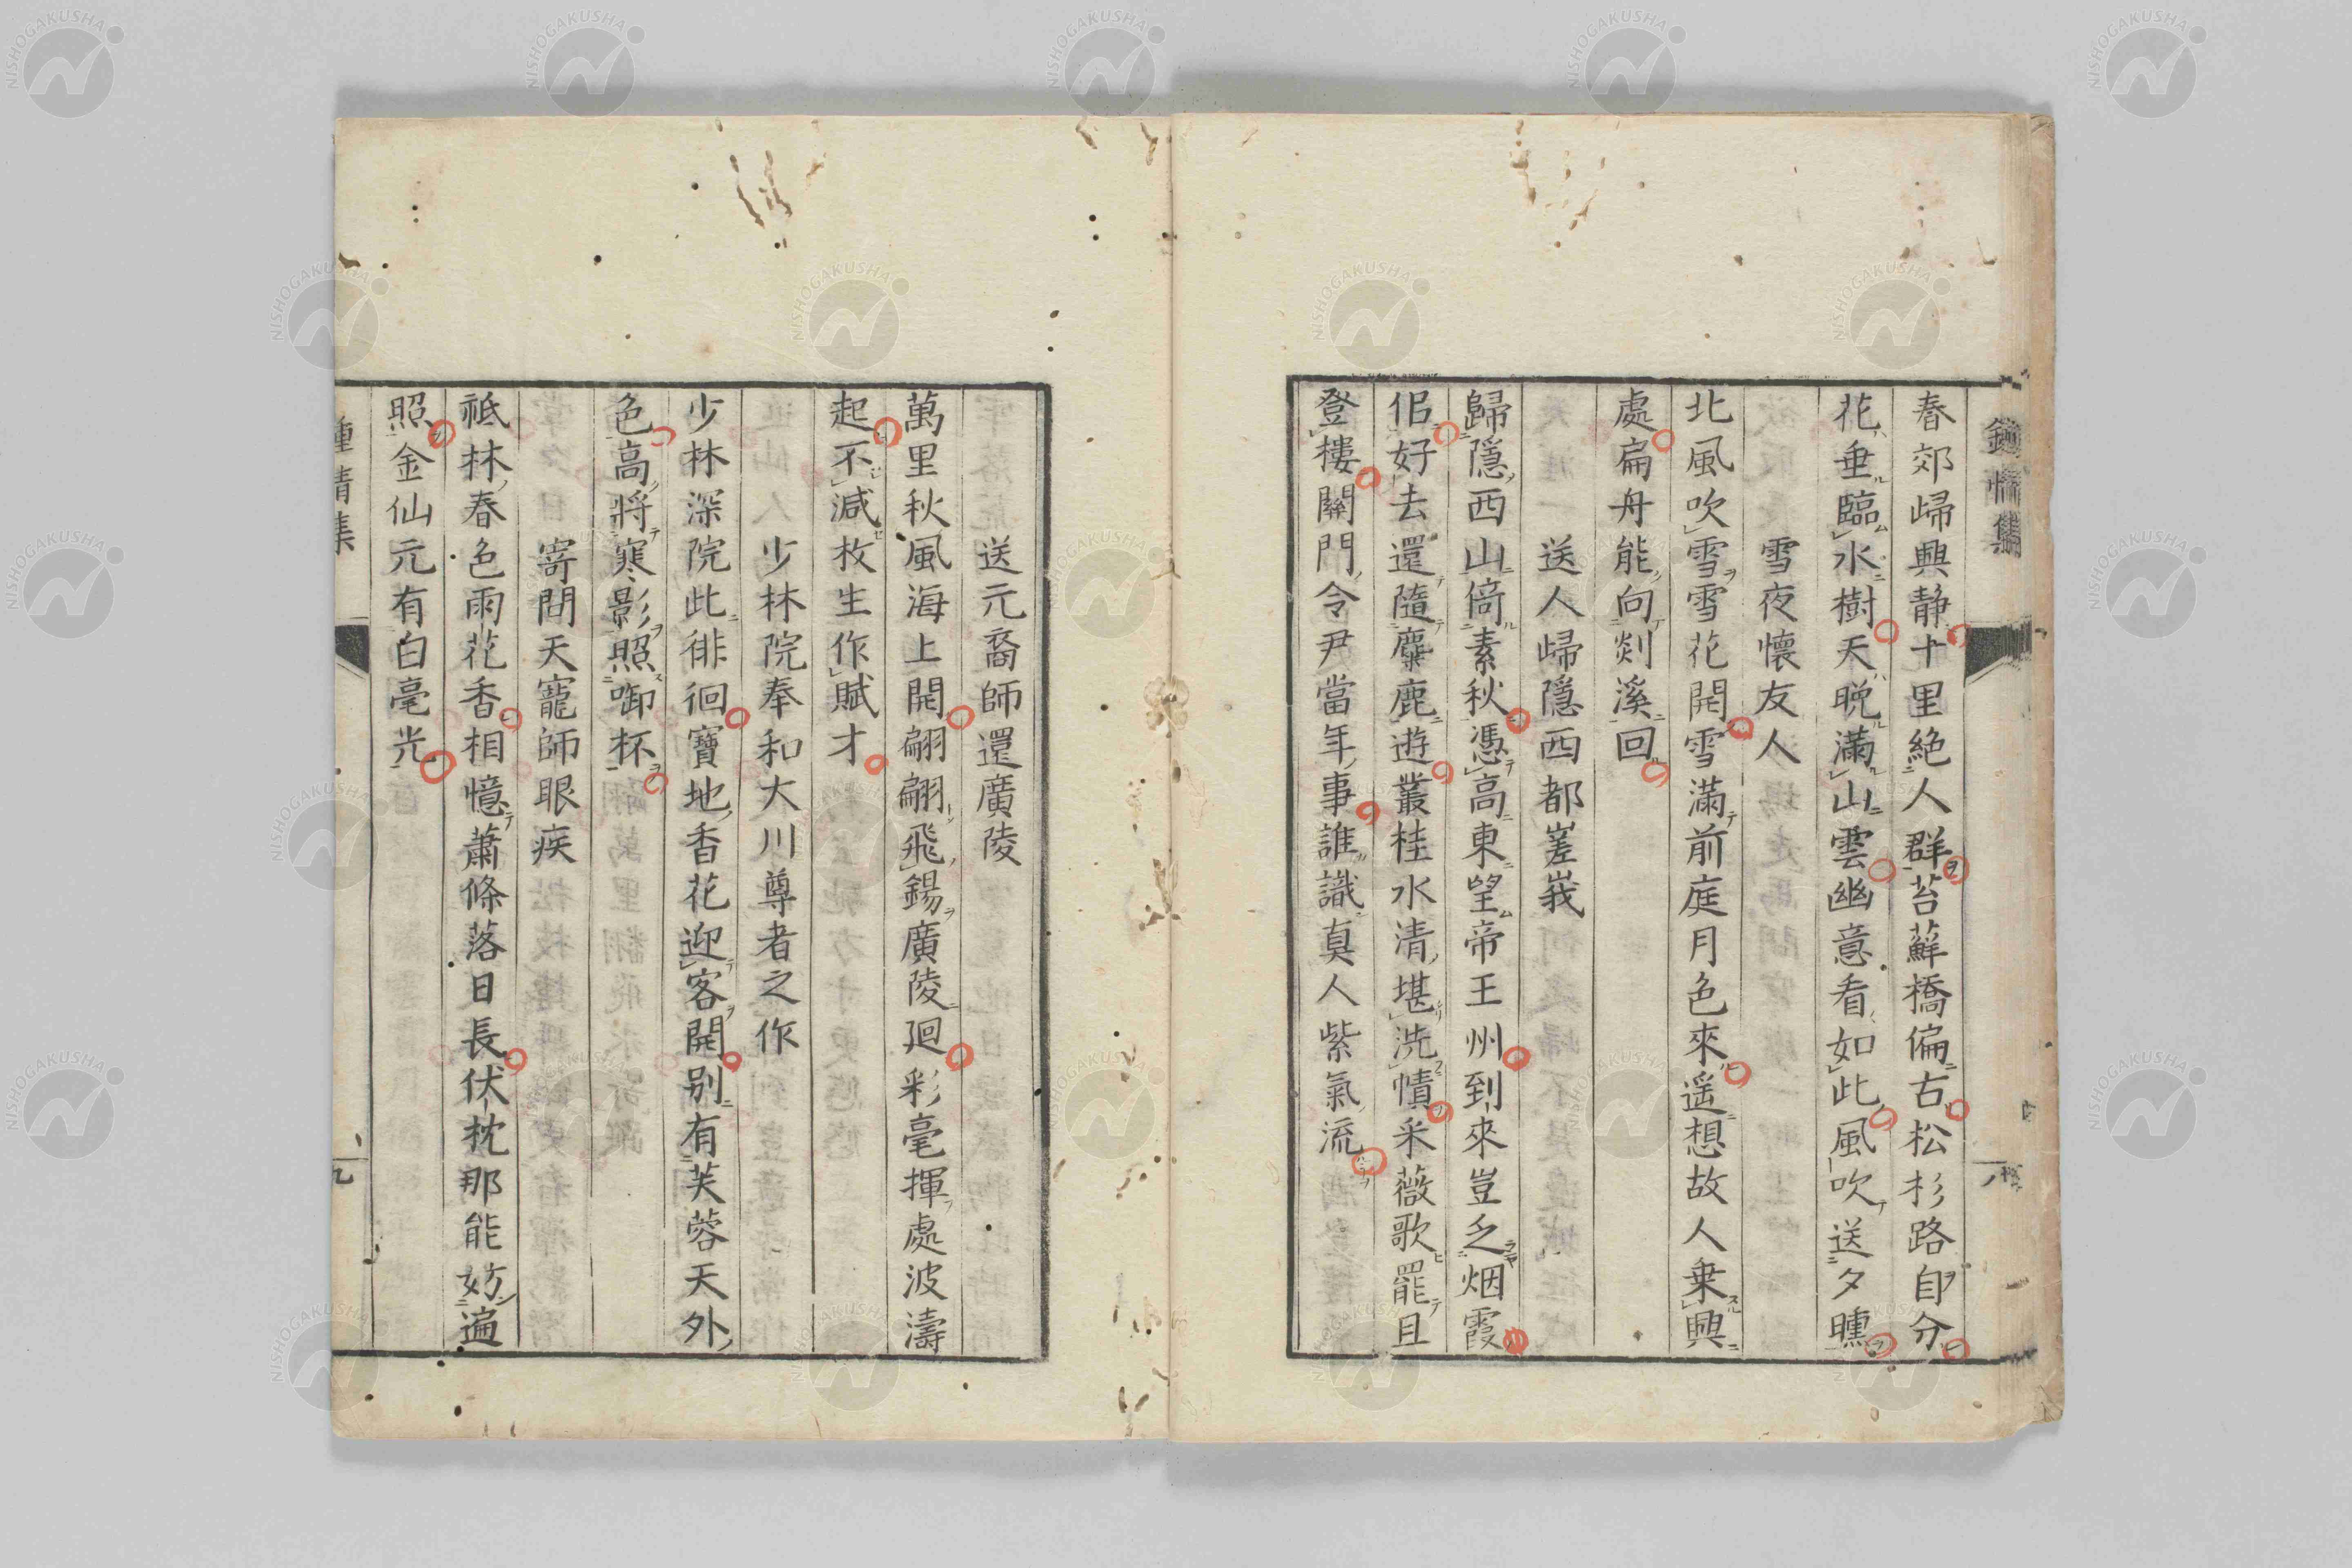 春郊歸興静十里絶人群苔蘚橋偏古松杉路自分
花垂臨水樹天晩滿山雲幽意看如此風吹送夕曛
雪夜懷友人
北風吹雪雪花開雪滿前庭月色來遥想故人乗興
處扁舟能向剡溪回
送人歸隱西都嵳峩
歸隱西山倚素秋憑高東望帝王州到來豈乏烟霞
侶好去還隨麋鹿遊叢桂水清堪洗幘采薇歌罷且
登樓關門令尹當年事誰識真人紫氣流
送元裔師還廣陵
萬里秋風海上開翩翩飛錫廣陵廻彩毫揮處波濤
起不減枚生作賦才
少林院奉和大川尊者之作
少林深院此徘徊寶地香花迎客開别有芙蓉天外
色高將寒影照啣杯
寄問天寵師眼疾
祗林春色雨花香相憶蕭條落日長伏枕那能妨遍
照金仙元有白毫光
鍾情集
九
NISHOGAKUSHA